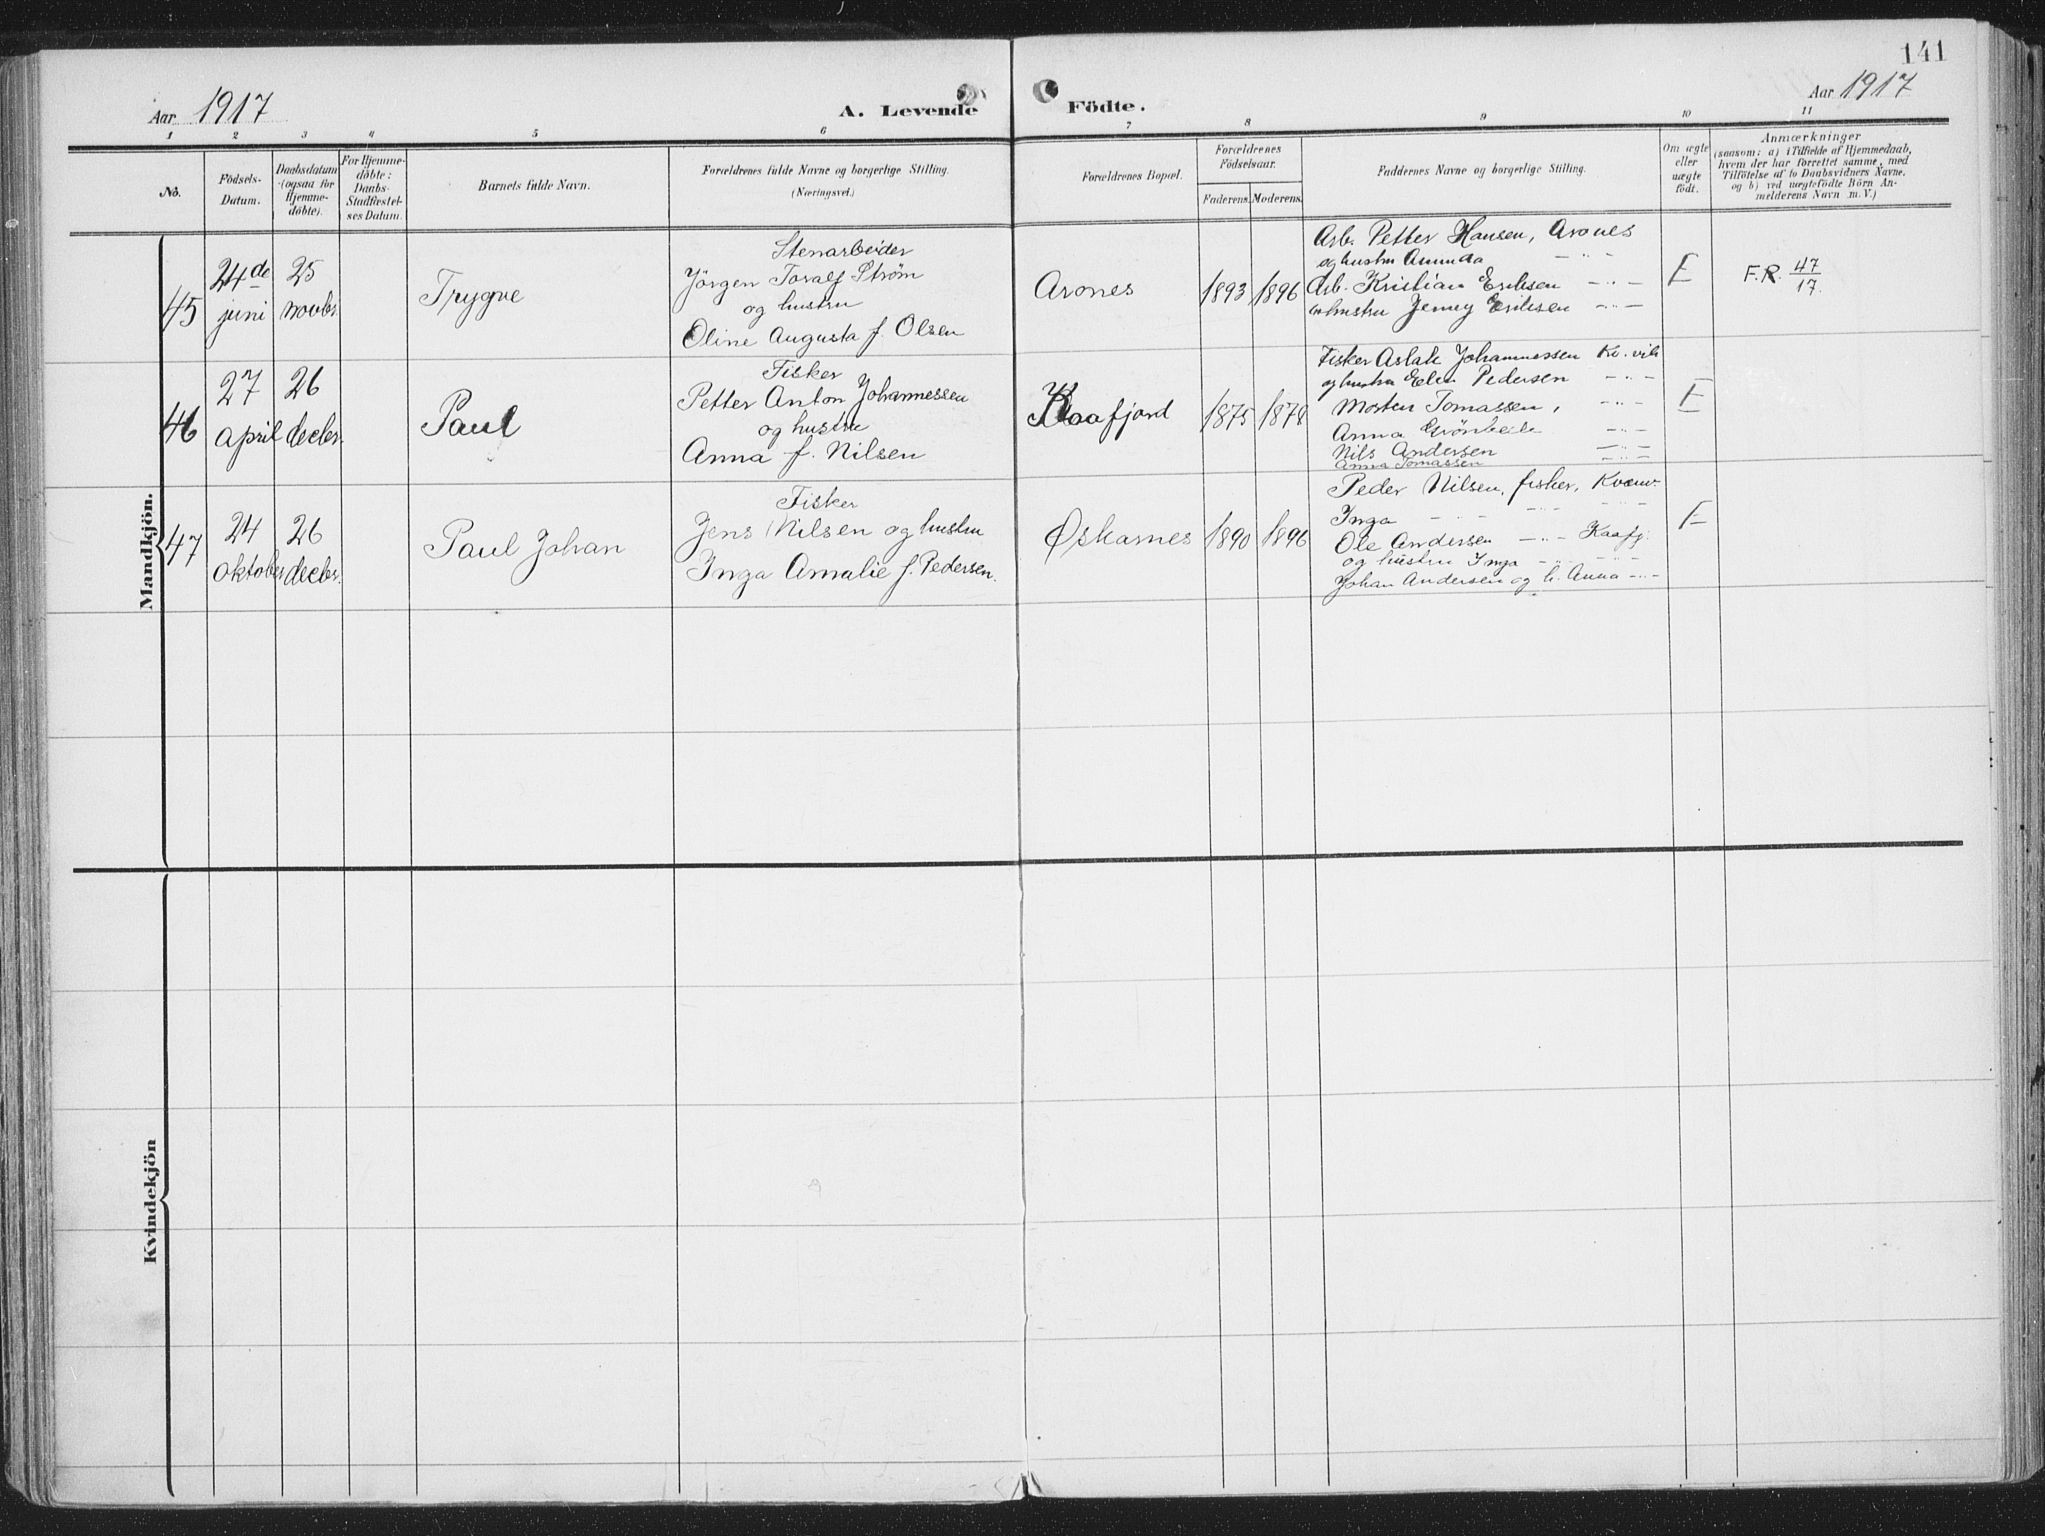 141
Aar 1917
A. Levende Födte.
Aar 1917
1 2 3 4 5 6 7 8 9 10 11
No.
Födsels-
Datum.
Daabsdatum
(ogsaa for
Hjemme-
döbte).
For Hjemme-
döbte:
Daabs-
Stadfæstel-
ses Datum.
Barnets fulde Navn.
Forældrenes fulde Navne og borgerlige Stilling.
(Næringsvei.)
Forældrenes Bopæl.
Forældrenes
Födselsaar.
Faderens. Moderens.
Faddernes Navne og borgerlige Stilling.
Om ægte
eller
uægte
födt.
Anmærkninger
(saasom: a) i Tilfælde af Hjemmedaab,
hvem der har forrettet samme, med
Tilföielse af to Daabsvidners Navne,
og b) ved uægtefödte Börn An-
melderens Navn m. V.)
Mandkjön.
45
24de
juni
25
novbr.
Trygve
Stenarbeider
Jörgen Toralf Strøm
og hustru
Oline Augusta f. Olsen
Arones
1893 1896
Arb. Petter Hansen, Arones
og hustru Amunda -"-
Arb. Kristian Eriksen -"-
og hustru Jenny Eriksen -"-
E
F.R. 47/17.
46
27
april
26
decbr.
Paul
Fisker
Petter Anton Johannessen
og hustru
Anna f. Nilsen
Kaafjord
1875 1878
Fisker Aslak Johannessen Kv. vik
og hustru Elen Pedersen -"-
Morten Tomassen, -"-
Anna -"-
Nils Andersen -"-
Anna Tomassen -"-
E
47
24
oktober
26
decbr.
Paul Johan
Fisker
Jens Nilsen og hustru
Inga Amalie f. Pedersen.
Øskarnes
1890 1896
Peder Nilsen, fisker, Kvænv.
Inga -"- -"- -"-
Ole Andersen -"- Kaafj.
og hustru Inga -"- -"-
Johan Andersen og h. Anna -"-
E
Kvindekjön